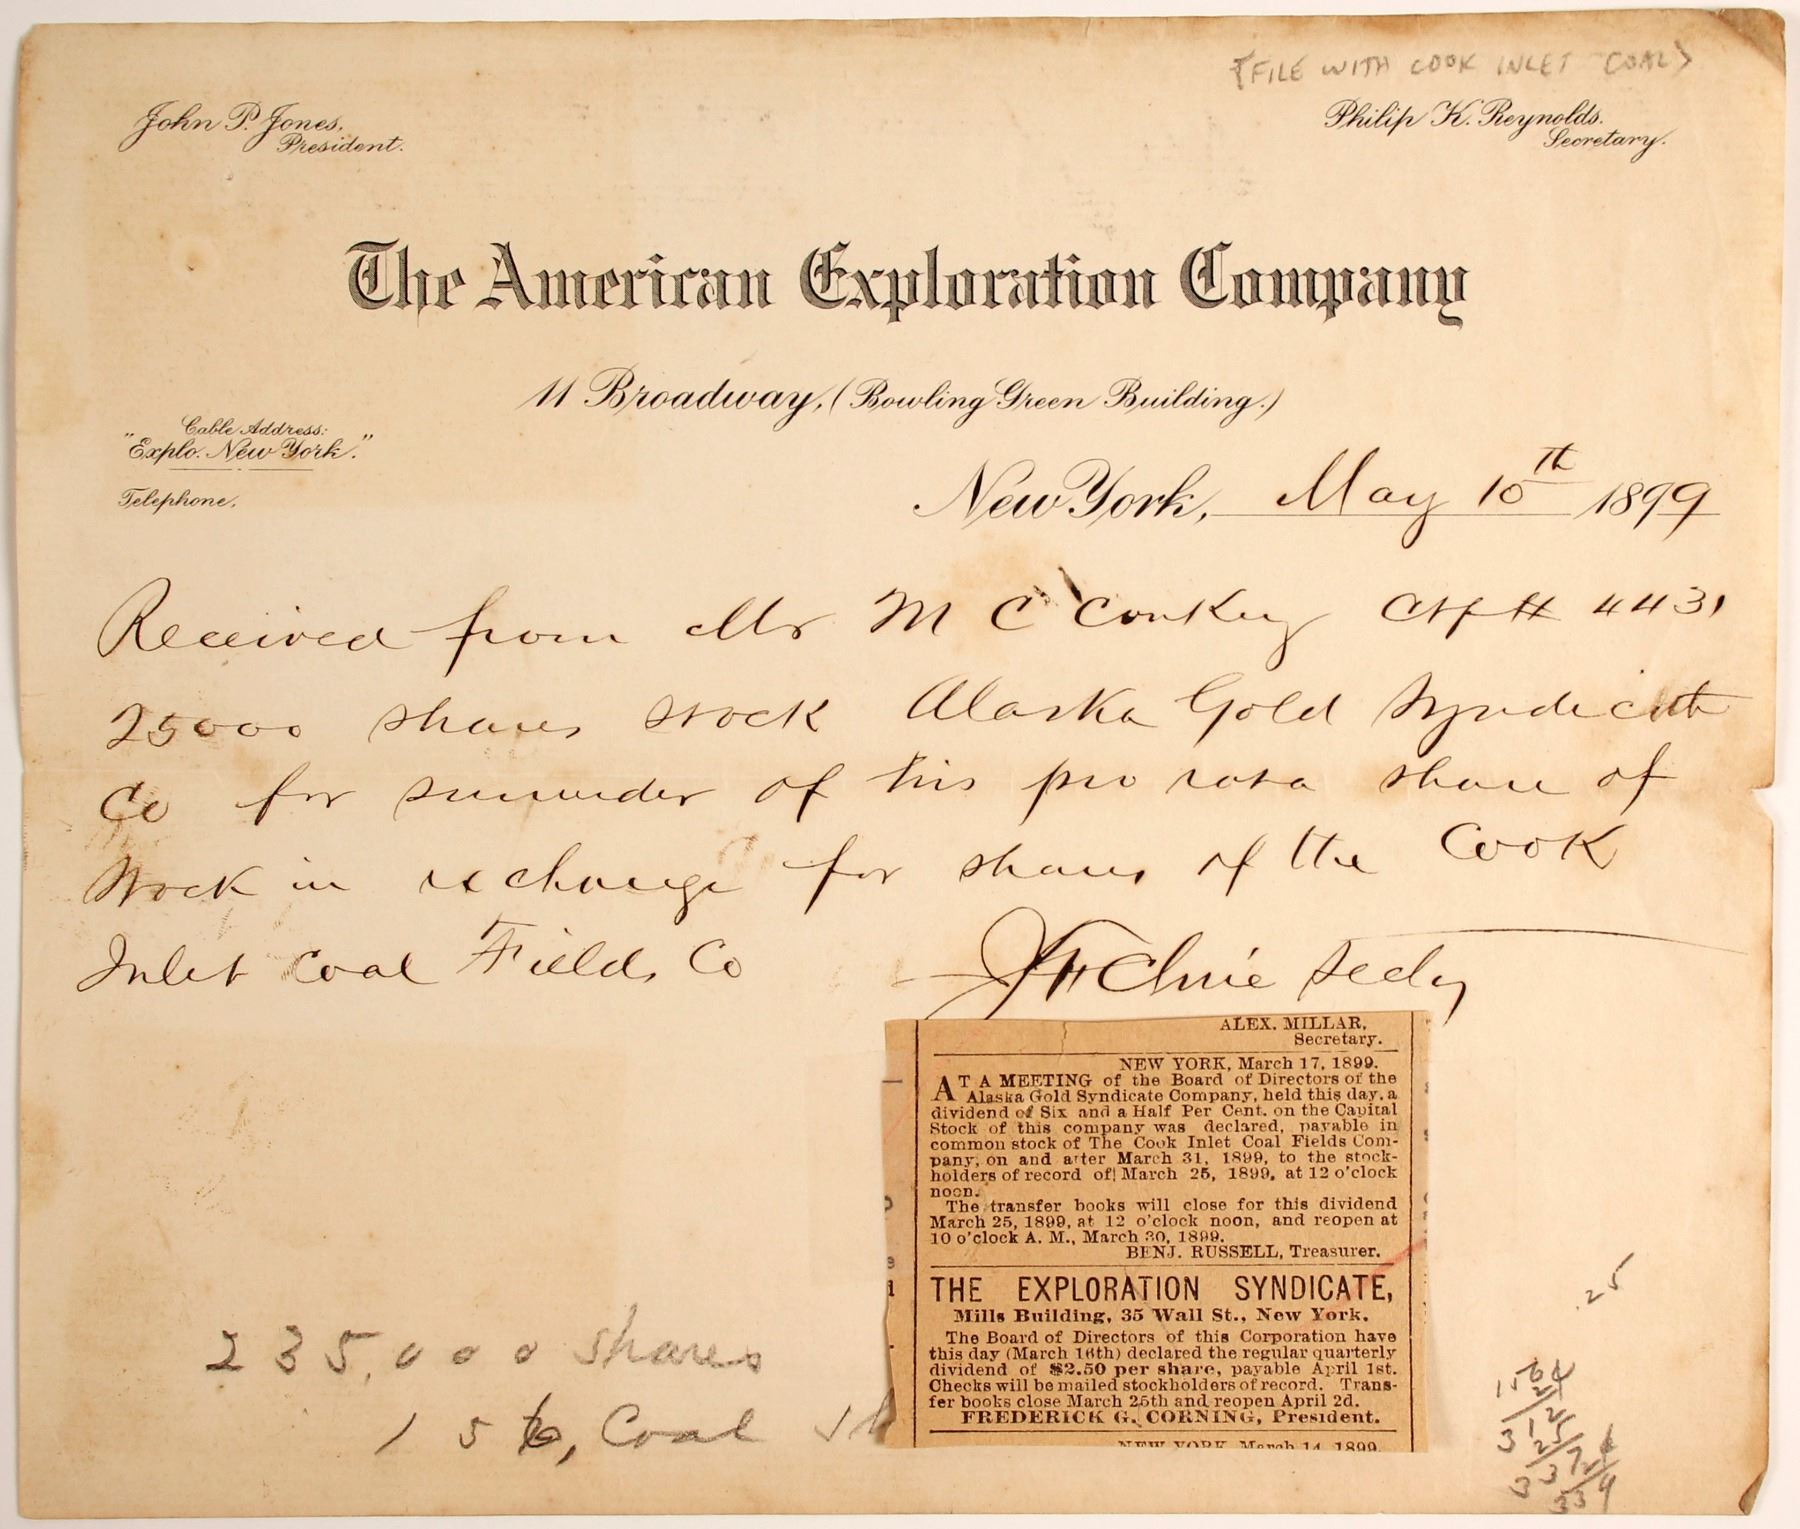 {FILE WITH COOK INLET COAL}
John P. Jones,
President.
Philip K. Reynolds.
Secretary.
The American Exploration Company
11 Broadway, (Bowling Green Building.)
Cable Address:
"Explo. New York."
Telephone.
New York, May 10th 1899
Received from Mr McConkey Ctf # 4431
25000 shares stock Alaska Gold Syndicate
Co for surrender of his pro rata share of
Stock in exchange for shares of the Cook
Inlet Coal Fields Co
Secty
ALEX. MILLAR,
Secretary.
NEW YORK, March 17, 1899.
AT A MEETING of the Board of Directors of the
Alaska Gold Syndicate Company, held this day, a
dividend of Six and a Half Per Cent. on the Capital
Stock of this company was declared, payable in
common stock of The Cook Inlet Coal Fields Com-
pany, on and after March 31, 1899, to the stock-
holders of record of March 25, 1899, at 12 o'clock
noon.
The transfer books will close for this dividend
March 25, 1899, at 12 o'clock noon, and reopen at
10 o'clock A. M., March 30, 1899.
BENJ. RUSSELL, Treasurer.
THE EXPLORATION SYNDICATE,
Mills Building, 35 Wall St., New York.
The Board of Directors of this Corporation have
this day (March 16th) declared the regular quarterly
dividend of $2.50 per share, payable April 1st.
Checks will be mailed stockholders of record. Trans-
fer books close March 25th and reopen April 2d.
FREDERICK G. CORNING, President.
NEW YORK, March 14, 1899.
235,000 shares
Coal
.25